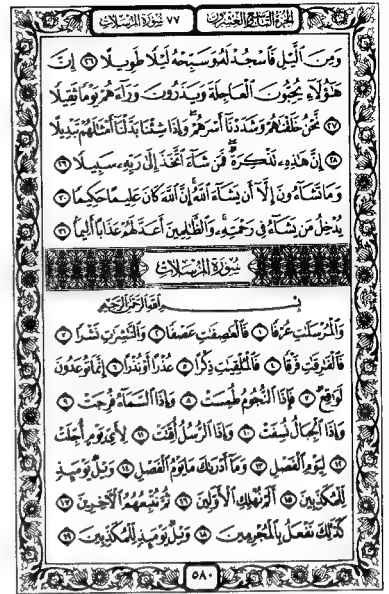 الجزء التاسع والعشرون ٧٧ سورة المرسلات
وَمِنَ ٱلَّيۡلِ فَٱسۡجُدۡ لَهُۥ وَسَبِّحۡهُ لَيۡلٗا طَوِيلًا ٢٦ إِنَّ
هَٰٓؤُلَآءِ يُحِبُّونَ ٱلۡعَاجِلَةَ وَيَذَرُونَ وَرَآءَهُمۡ يَوۡمٗا ثَقِيلٗا
٢٧ نَّحۡنُ خَلَقۡنَٰهُمۡ وَشَدَدۡنَآ أَسۡرَهُمۡۖ وَإِذَا شِئۡنَا بَدَّلۡنَآ أَمۡثَٰلَهُمۡ تَبۡدِيلًا
٢٨ إِنَّ هَٰذِهِۦ تَذۡكِرَةٞۖ فَمَن شَآءَ ٱتَّخَذَ إِلَىٰ رَبِّهِۦ سَبِيلٗا ٢٩
وَمَا تَشَآءُونَ إِلَّآ أَن يَشَآءَ ٱللَّهُۚ إِنَّ ٱللَّهَ كَانَ عَلِيمًا حَكِيمٗا ٣٠
يُدۡخِلُ مَن يَشَآءُ فِي رَحۡمَتِهِۦۚ وَٱلظَّٰلِمِينَ أَعَدَّ لَهُمۡ عَذَابًا أَلِيمَۢا ٣١
سورة المرسلات
بِسۡمِ ٱللَّهِ ٱلرَّحۡمَٰنِ ٱلرَّحِيمِ
وَٱلۡمُرۡسَلَٰتِ عُرۡفٗا ١ فَٱلۡعَٰصِفَٰتِ عَصۡفٗا ٢ وَٱلنَّٰشِرَٰتِ نَشۡرٗا ٣
فَٱلۡفَٰرِقَٰتِ فَرۡقٗا ٤ فَٱلۡمُلۡقِيَٰتِ ذِكۡرًا ٥ عُذۡرًا أَوۡ نُذۡرًا ٦ إِنَّمَا تُوعَدُونَ
لَوَٰقِعٞ ٧ فَإِذَا ٱلنُّجُومُ طُمِسَتۡ ٨ وَإِذَا ٱلسَّمَآءُ فُرِجَتۡ ٩
وَإِذَا ٱلۡجِبَالُ نُسِفَتۡ ١٠ وَإِذَا ٱلرُّسُلُ أُقِّتَتۡ ١١ لِأَيِّ يَوۡمٍ أُجِّلَتۡ
١٢ لِيَوۡمِ ٱلۡفَصۡلِ ١٣ وَمَآ أَدۡرَىٰكَ مَا يَوۡمُ ٱلۡفَصۡلِ ١٤ وَيۡلٞ يَوۡمَئِذٖ
لِّلۡمُكَذِّبِينَ ١٥ أَلَمۡ نُهۡلِكِ ٱلۡأَوَّلِينَ ١٦ ثُمَّ نُتۡبِعُهُمُ ٱلۡأٓخِرِينَ ١٧
كَذَٰلِكَ نَفۡعَلُ بِٱلۡمُجۡرِمِينَ ١٨ وَيۡلٞ يَوۡمَئِذٖ لِّلۡمُكَذِّبِينَ ١٩
٥٨٠